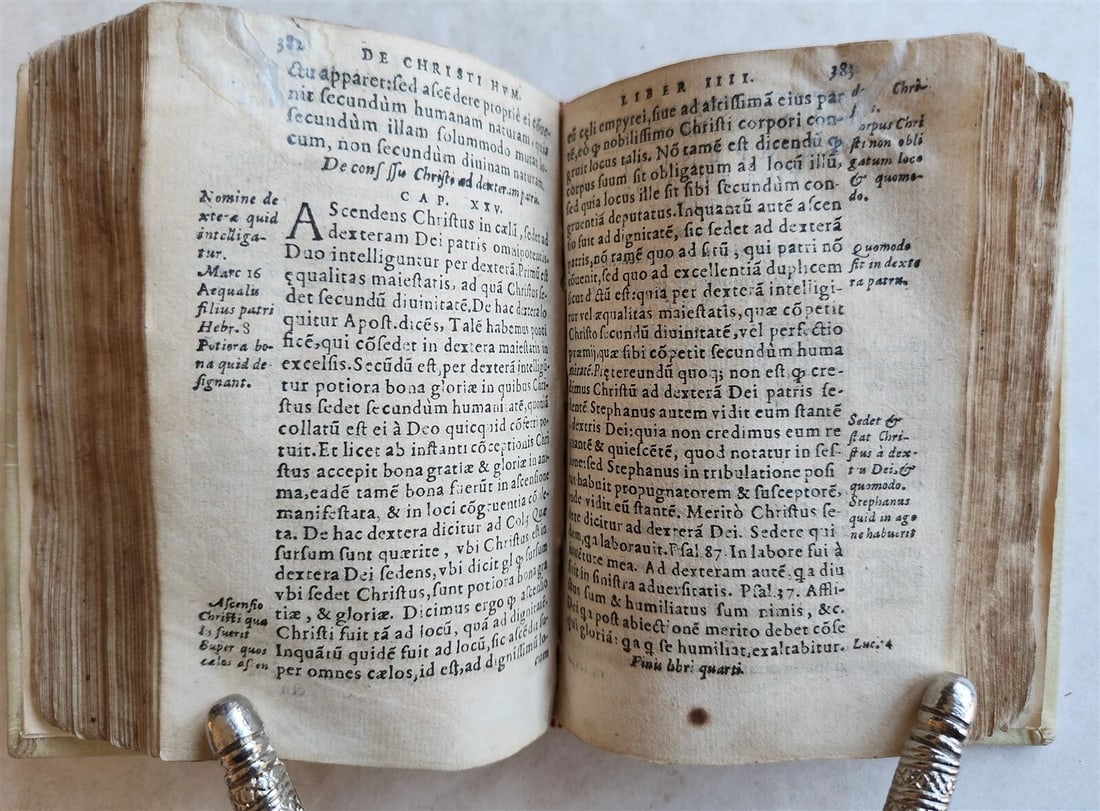 382
DE CHRISTI HVM.
ctu apparet: sed ascẽdere propriè ei cõue-
nit secundùm humanam naturam, quia
secundùm illam solummodo mutat lo-
cum, non secundùm diuinam naturam.
Christi ad dexteram patris.
CAP. XXV.
Nomine de
xteræ quid
intelliga-
tur.
Marc 16
Aequalis
filius patri
Hebr. 8
Potiora bo-
na quid de-
signant.
AScendens Christus in cælũ, sedet ad
dexteram Dei patris omnipotentis.
Duo intelliguntur per dexterã. Primũ est
ęqualitas maiestatis, ad quã Christus se-
det secundũ diuinitatẽ. De hac dextera lo
quitur Apost. dicẽs, Talẽ habemus ponti
ficẽ, qui cõsedet in dextera maiestatis in
excelsis. Secũdũ est, per dexterã intelligũ
tur potiora bona gloriæ in quibus Chri-
stus sedet secundùm humanitatẽ, quoniã
collatũ est ei à Deo quicquid cõferri po-
tuit. Et licet ab instanti cõceptionis Chri
stus accepit bona gratiæ & gloriæ in ani-
ma, eadẽ tamẽ bona fuerũt in ascensione
manifestata, & in loci cõgruentia cõple-
ta. De hac dextera dicitur ad Col. Quæ
sursum sunt quærite, vbi Christus est in
dextera Dei sedens, vbi dicit gl. ꝙ sursum
vbi sedet Christus, sunt potiora bona gra
tiæ, & gloriæ. Dicimus ergo ꝙ ascensio
Christi fuit tã ad locũ, quã ad dignitatẽ.
Inquãtũ quidẽ fuit ad locũ, sic ascẽdit su-
per omnes cælos, id est, ad dignissimũ lo-
cum
Ascensio
Christi qua
lis fuerit
Super quos
cælos ascen
383
LIBER IIII.
eũ cęli empyrei, siue ad altissimã eius par
tẽ, eò ꝙ nobilissimo Christi corpori con-
gruit locus talis. Nõ tamẽ est dicendũ ꝙ
corpus suum sit obligatum ad locũ illũ,
sed quia locus ille sit sibi secundùm con-
gruentiã deputatus. Inquantũ autẽ ascen
sio fuit ad dignitatẽ, sic sedet ad dexterã
patris, nõ tamẽ quo ad sitũ, qui patri nõ
cõuenit, sed quo ad excellentiã duplicem
sicut dictũ est: quia per dexterã intelligi-
tur vel æqualitas maiestatis, quæ cõpetit
Christo secundũ diuinitatẽ, vel perfectio
præmij, quæ sibi cõpetit secundùm huma
nitatẽ. Prętereundũ quoqꝫ non est, ꝙ cre-
dimus Christũ ad dexterã Dei patris se-
dentẽ Stephanus autem vidit eum stantẽ
à dextris Dei: quia non credimus eum re
gnantẽ & quiescẽtẽ, quod notatur in ses-
sione: sed Stephanus in tribulatione posi
tus habuit propugnatorem & susceptorẽ,
vnde vidit eũ stantẽ. Meritò Christus se-
dere dicitur ad dexterã Dei. Sedere qui
dem, qa laborauit. Psal. 87. In labore fui à
iuuẽtute mea. Ad dexteram autẽ, qa diu
fuit in sinistra aduersitatis. Psal. 37. Affli-
ctus sum & humiliatus sum nimis, &c.
Dei qa post abiectionẽ merito debet cõse
qui gloriã: qa q se humiliat, exaltabitur.
Finis libri quarti.
corpus Chri
sti non obli
gatum loco
& quomo-
do.
Quomodo
sit in dexte
ra patris.
Sedet &
stat Chri-
stus à dex-
tris Dei, &
quomodo.
Stephanus
quid in ago
ne habuerit
Luc. 4